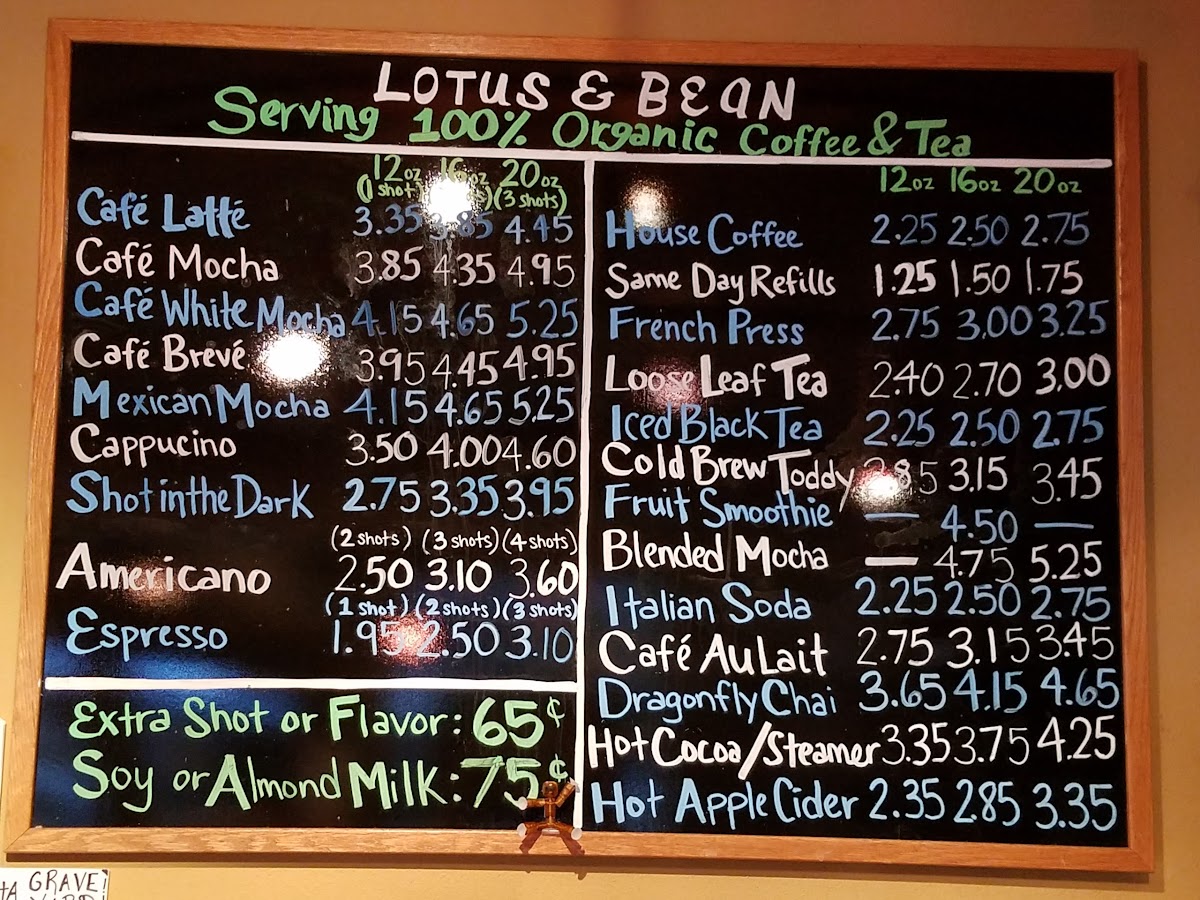 LOTUS & BEAN
Serving 100% Organic Coffee & Tea
12oz 16oz 20oz
(1 shot) (3 shots)
Café Latté 3.35 3.85 4.45
Café Mocha 3.85 4.35 4.95
Café White Mocha 4.15 4.65 5.25
Café Brevé 3.95 4.45 4.95
Mexican Mocha 4.15 4.65 5.25
Cappucino 3.50 4.00 4.60
Shot in the Dark 2.75 3.35 3.95
(2 shots) (3 shots) (4 shots)
Americano 2.50 3.10 3.60
(1 shot) (2 shots) (3 shots)
Espresso 1.95 2.50 3.10
Extra Shot or Flavor: 65¢
Soy or Almond Milk: 75¢
12oz 16oz 20oz
House Coffee 2.25 2.50 2.75
Same Day Refills 1.25 1.50 1.75
French Press 2.75 3.00 3.25
Loose Leaf Tea 2.40 2.70 3.00
Iced Black Tea 2.25 2.50 2.75
Cold Brew Toddy 3.15 3.45
Fruit Smoothie — 4.50 —
Blended Mocha — 4.75 5.25
Italian Soda 2.25 2.50 2.75
Café Au Lait 2.75 3.15 3.45
Dragonfly Chai 3.65 4.15 4.65
Hot Cocoa/Steamer 3.35 3.75 4.25
Hot Apple Cider 2.35 2.85 3.35
GRAVE!